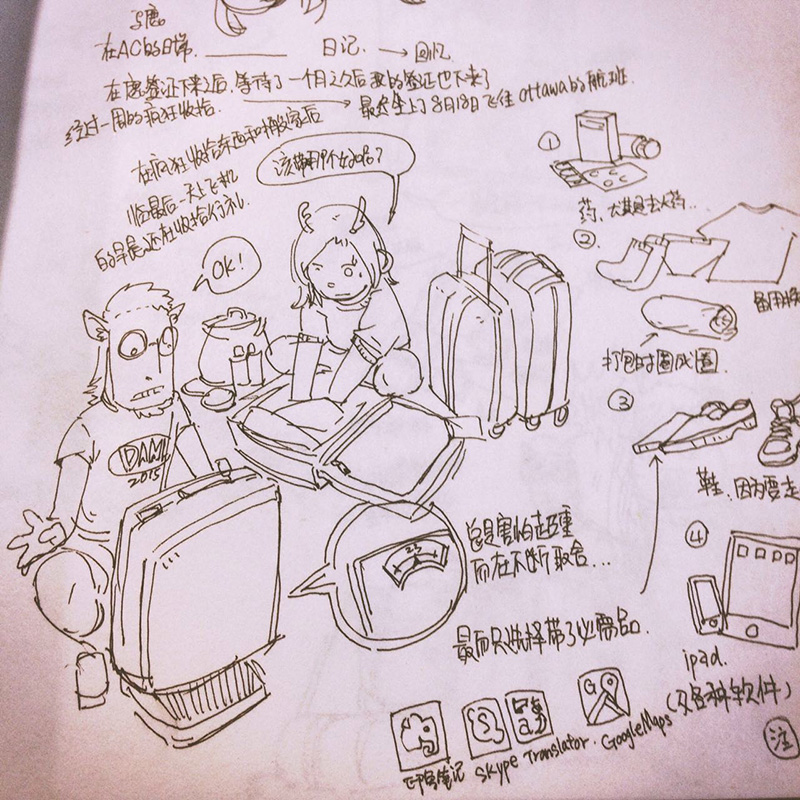 与鹿
在AC的日常. 日记. → 回忆
在鹿签证下来之后,等待了一个月之后我的签证也下来了
经过一周的疯狂收拾 → 最终坐上了8月18日飞往ottawa的航班.
在疯狂收拾东西和搬家后
临最后一天上飞机
的早晨还在收拾行礼.
该带哪个好咯?
OK!
IDAMI
2015
①
药,尤其是去火药..
②
备用换
打包时圈成圈.
③
鞋,因为要走
总是害怕超重
而在不断取舍...
23
最后只选择带了必需品.
④
ipad.
(及各种软件)
印象笔记 skype Translator. GoogleMaps
注